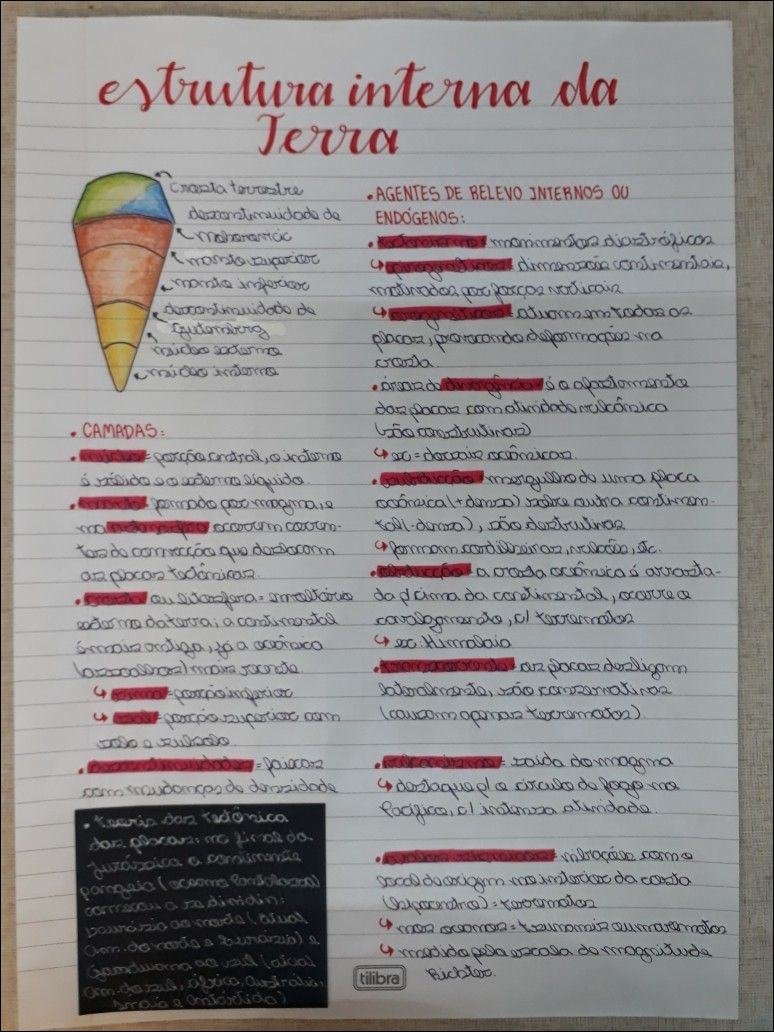 estrutura interna da
Terra
Crosta terrestre
descontinuidade de
Mohorovicic
manto superior
manto inferior
descontinuidade de
Gutemberg
núcleo externo
núcleo interno
• CAMADAS:
• núcleo = porção central, o interno
é sólido e o externo líquido.
• manto = formado por magma, e
na astenosfera ocorrem corren-
tes de convecção que deslocam
as placas tectônicas.
• crosta ou litosfera = envoltório
externo da terra; a continental
é mais antiga, já a oceânica
(assoalhos) mais recente.
↳ sima = porção inferior
↳ sial = porção superior com
solo e subsolo
• descontinuidades = faixas
com mudanças de densidade
• teoria das tectônica
das placas: no final da
jurássica o continente
pangeia (oceano Pantalassa)
começou a se dividir:
Laurásia ao norte (atual
Am. do norte e Eurásia) e
Gondwana ao sul (atual
Am. do sul, África, Austrália,
Índia e Antártida)
• AGENTES DE RELEVO INTERNOS OU
ENDÓGENOS:
• tectonismo = movimentos diastróficos
↳ epirogenéticos = dimensões continentais,
motivados por forças verticais
↳ orogenéticos = atuam em todas as
placas, provocando deformações na
crosta.
• áreas de divergência = é o afastamento
das placas com atividade vulcânica
(são construtivas)
↳ ex = dorsais oceânicas.
• subducção = mergulho de uma placa
oceânica (+densa) sobre outra continen-
tal (-densa), são destrutivas
↳ formam cordilheiras, vulcões, etc.
• obducção = a crosta oceânica é arrasta-
da p/ cima da continental, ocorre o
cavalgamento, c/ terremotos
↳ ex: Himalaia
• transcorrente = as placas deslizam
lateralmente, são conservativas
(causam apenas terremotos).
• vulcanismo = saída do magma
↳ destaque p/ o círculo de fogo no
Pacífico, c/ intensa atividade.
• abalos sísmicos = vibrações com o
local de origem no interior da costa
(hipocentro) = terremotos
↳ nos oceanos = tsunamis ou maremotos
↳ medido pela escala de magnitude
Richter.
tilibra